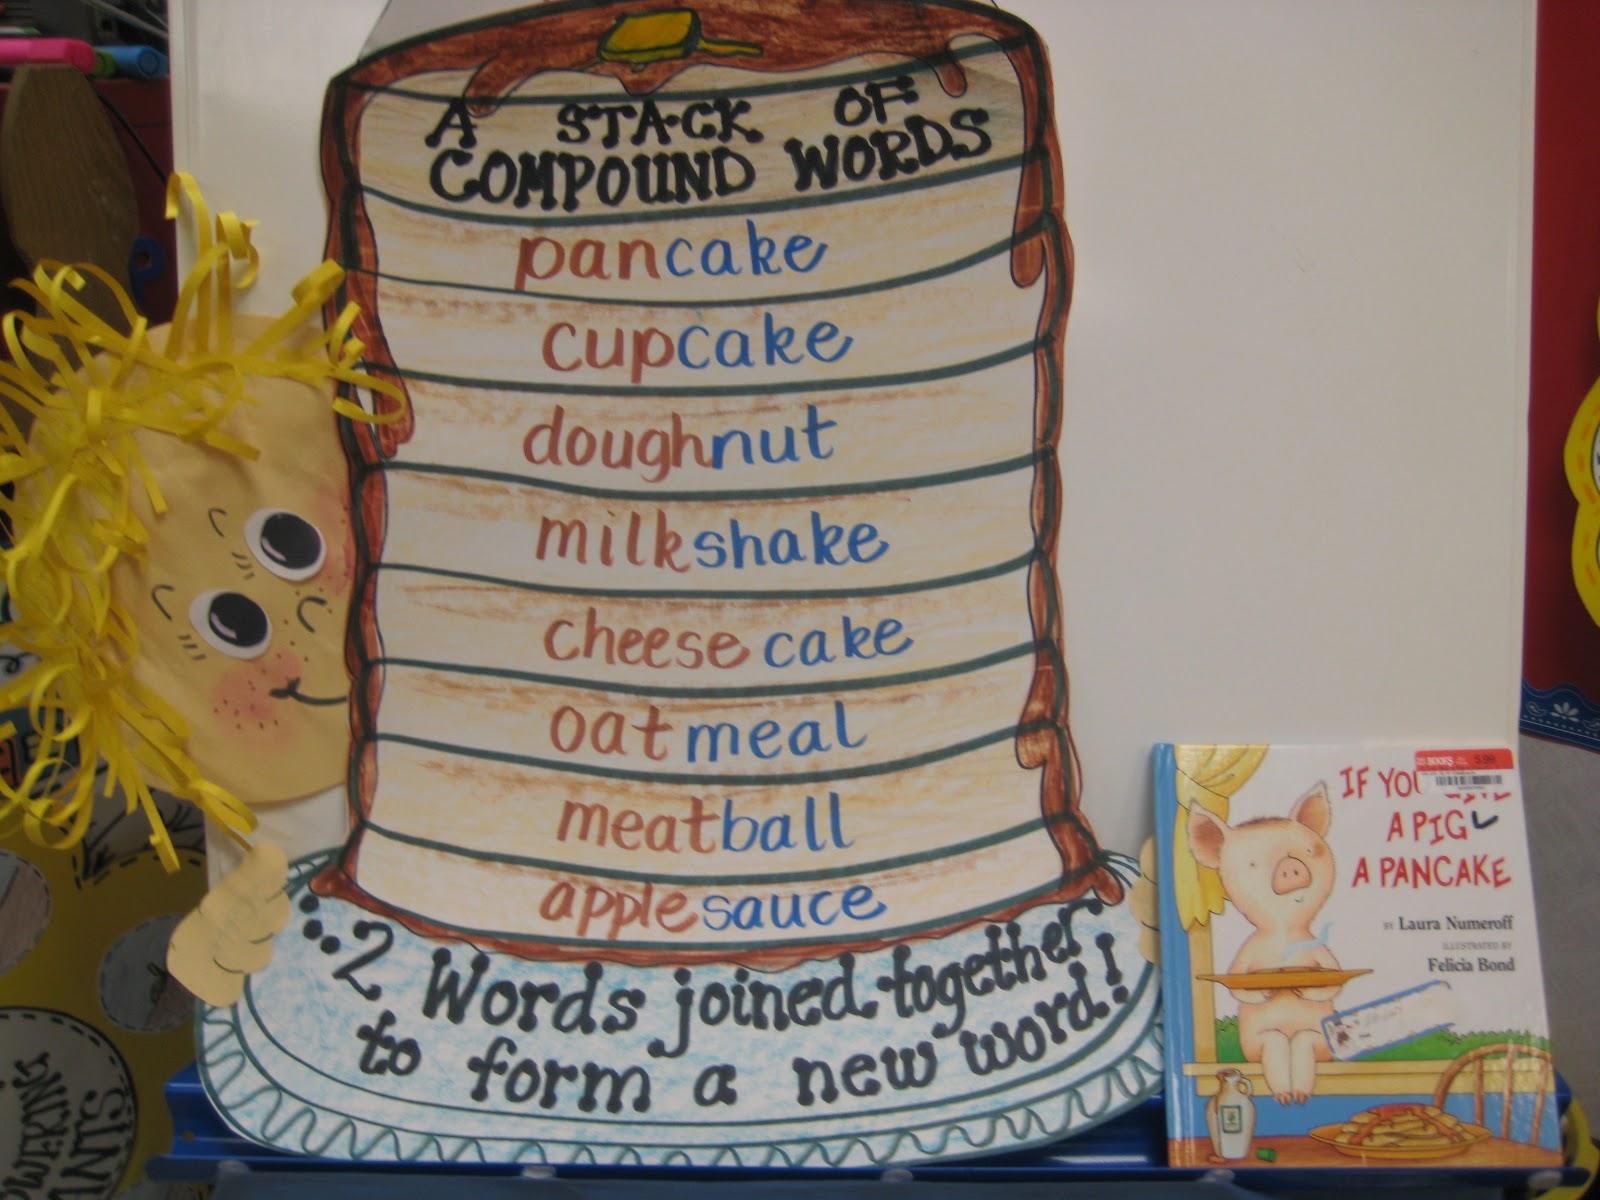 A STACK OF
COMPOUND WORDS
pancake
cupcake
doughnut
milkshake
cheesecake
oatmeal
meatball
applesauce
..2 Words joined together
to form a new word!
IF YOU
A PIG
A PANCAKE
BY Laura Numeroff
ILLUSTRATED BY
Felicia Bond
BOOKS 5.99